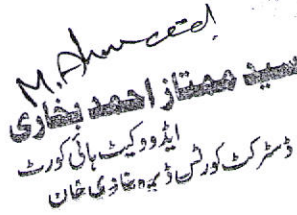 M. Ahmeed
سید ممتاز احمد بخاری
ایڈووکیٹ ہائی کورٹ
ڈسٹرکٹ کورٹس ڈیرہ غازی خان